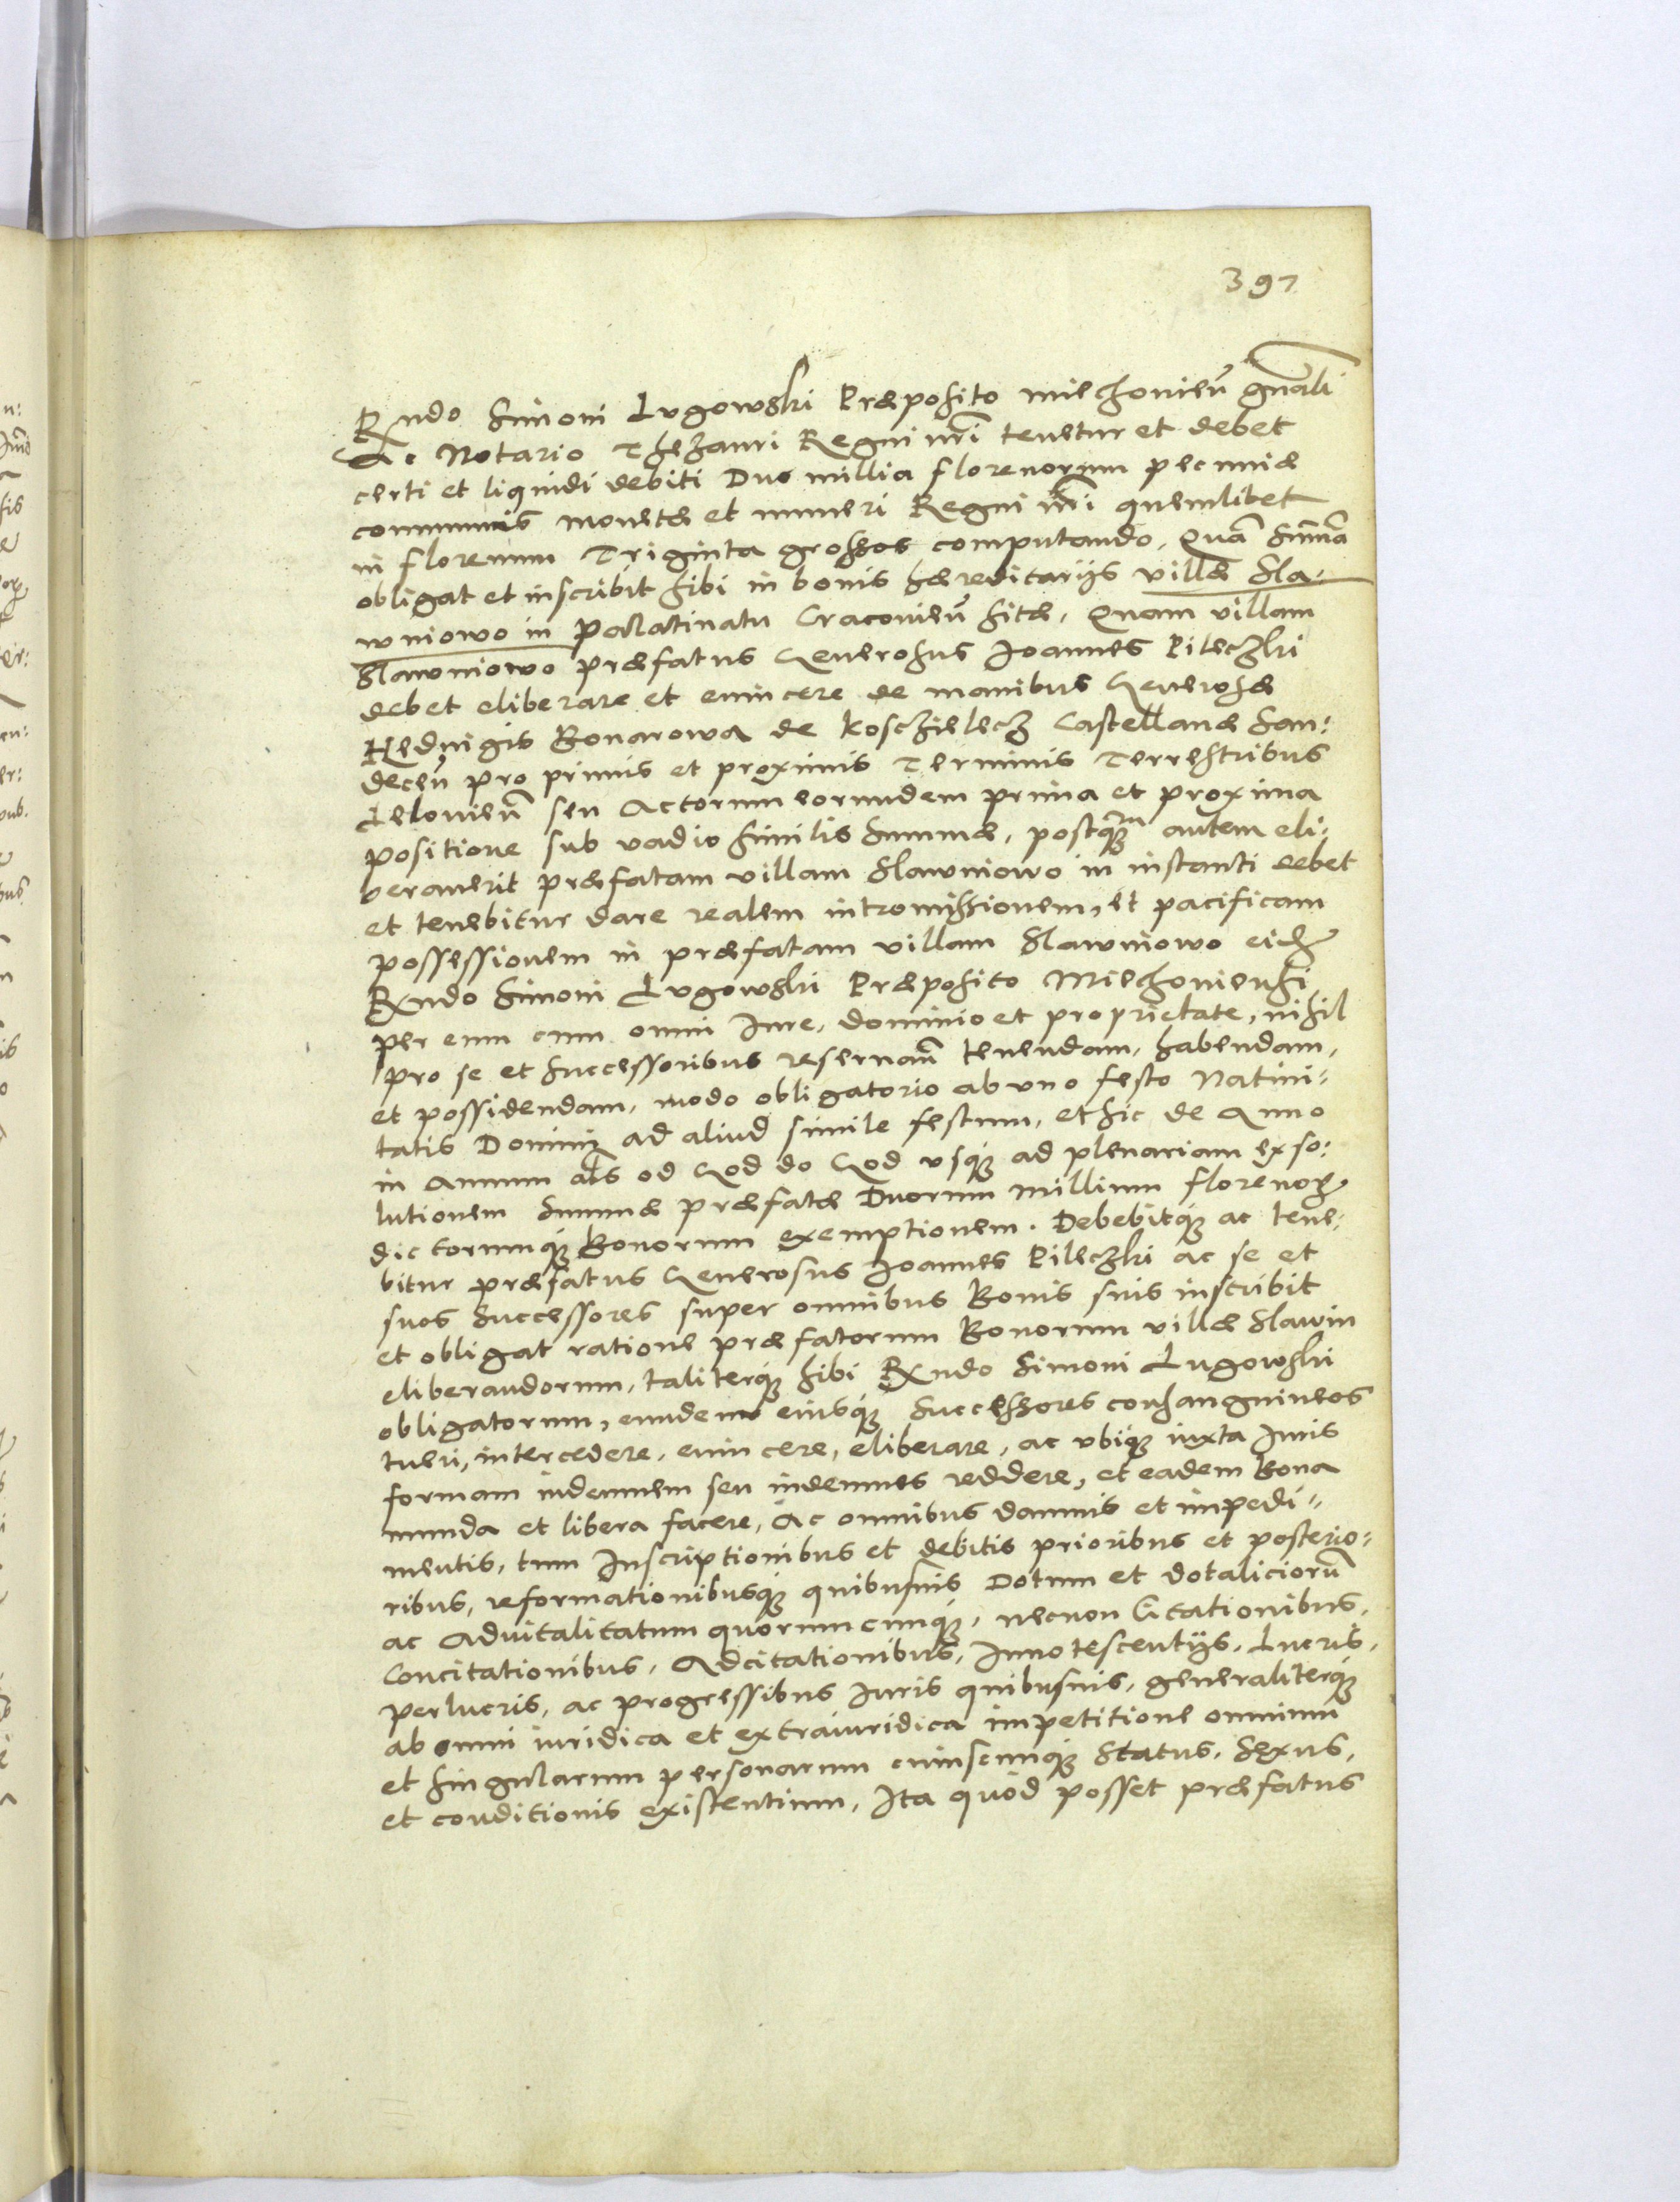 397
Rndo Simoni Lugowski Præposito miechovien̄ gn̄ali
Ac Notario Thezauri Regni nr̄i tenetur et debet
certi et liquidi debiti Duo millia florenorum pecuniæ
communis monetæ et numeri Regni nr̄i quemlibet
in florenum Triginta grossos computando, Quā Sum̄ā
obligat et inscribit sibi in bonis hæreditarijs villæ Sla-
wniowo in Palatinatu Cracovien̄ sitæ, Quam villam
Slawniowo præfatus Generosus Joannes Pileczki
debet eliberare et evincere de manibus Generosæ
Hedvigis Bonarowa de Kosczielecz Castellanæ San:
decen̄ pro primis et proximis Terminis Terrestribus
Lelovien̄ seu Actorum eorundem prima et proxima
positione sub vadio similis summæ, postq̄ȝm autem eli:
beraverit præfatam villam Slawniowo in instanti debet
et tenebitur dare realem intromissionem, et pacificam
possessionem in præfatam villam Slawniowo eidȝ
Rndo Simoni Lugowski Præposito Miechoviensi
per eum cum omni Jure, dominio et proprietate, nihil
pro se et Successoribus reservan̄ tenendam, habendam,
et possidendam, modo obligatorio ab uno festo Nativi-
tatis Dominj ad aliud simile festum, et sic de Anno
in Annum als od God do God usqȝ ad plenariam exso:
lutionem Summæ præfatæ Duorum millium florenoꝝ
dictorumqȝ Bonorum exemptionem. Debebitqȝ ac tene:
bitur præfatus Generosus Joannes Pileczki ac se et
suos Successores super omnibus Bonis suis inscribit
et obligat ratione præfatorum Bonorum villæ Slawin
eliberandorum, taliterqȝ sibi Rndo Simoni Lugowski
obligatorum, eundem eiusqȝ Successores consanguineos
tueri, intercedere, evincere, eliberare, ac ubiqȝ iuxta Juris
formam indemnem seu indemnes reddere, et eadem Bona
munda et libera facere, Ac omnibus damnis et impedi-
mentis, tum Inscriptionibus et debitis prioribus et posterio:
ribus, reformationibusqȝ quibusvis Dotum et dotaliciorū
ac Advitalitatum quorumcunqȝ, necnon Citationibus,
Concitationibus, Adcitationibus, Innotescentijs, Lucris,
perlucris, ac progressibus Juris quibusvis, generaliterqȝ
ab omni iuridica et extraiuridica impetitione omnium
et singularum personarum cuiuscunqȝ Status, Sexus,
et conditionis existentium, Ita quod posset præfatus